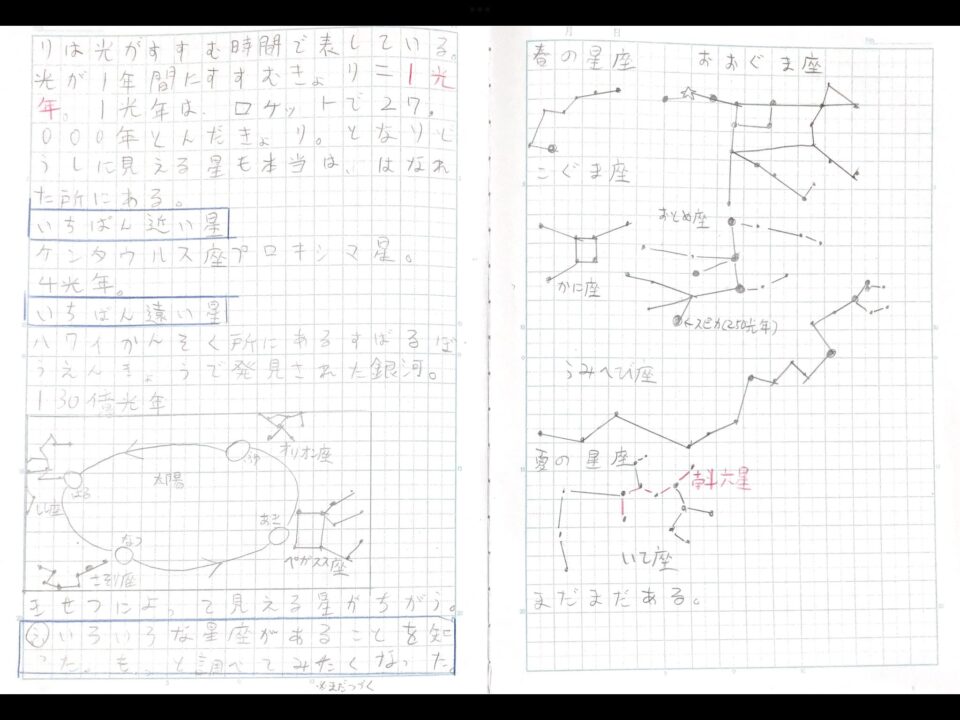 りは光がすすむ時間で表している。
光が1年間にすすむきょり=1光
年。1光年は、ロケットで27,
000年とんだきょり。となりど
うしに見える星も本当は、はなれ
た所にある。
いちばん近い星
ケンタウルス座プロキシマ星。
4光年。
いちばん遠い星
ハワイかんそく所にあるすばるぼ
うえんきょうで発見された銀河。
130億光年
オリオン座
ふゆ
太陽
はる
しし座
あき
ペガスス座
なつ
さそり座
きせつによって見える星がちがう。
いろいろな星座があることを知
った。もっと調べてみたくなった。
※まだつづく
月 日
春の星座 おおぐま座
こぐま座
おとめ座
かに座
←スピカ(250光年)
うみへび座
夏の星座
南斗六星
いて座
まだまだある。